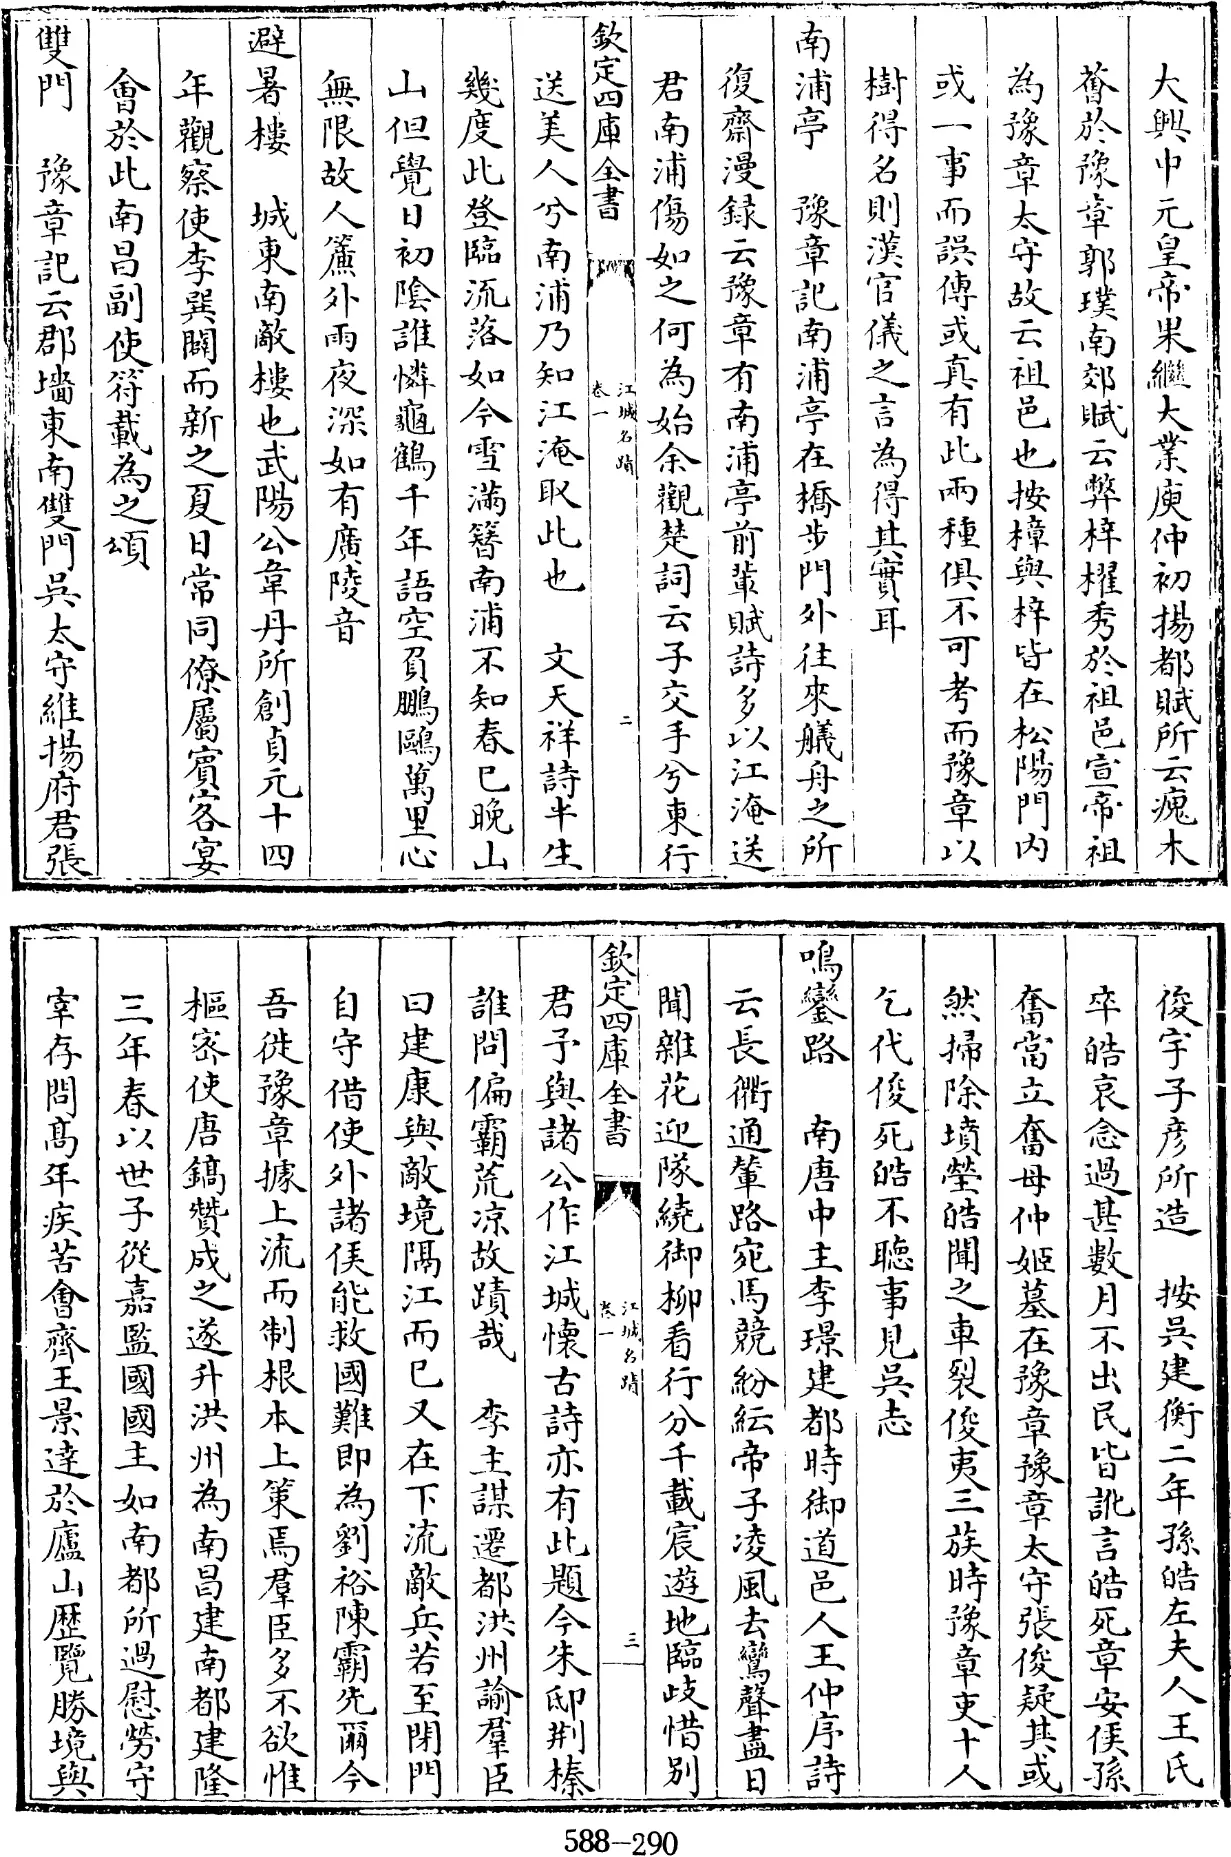 大興中元皇帝果繼大業庾仲初揚都賦所云瘣木
蓄於豫章郭璞南郊賦云弊梓擢秀於祖邑宣帝祖
為豫章太守故云祖邑也按樟與梓皆在松陽門内
或一事而誤傳或真有此兩種俱不可考而豫章以
樹得名則漢官儀之言為得其實耳
南浦亭　豫章記南浦亭在橋步門外往來艤舟之所
復齋漫録云豫章有南浦亭前輩賦詩多以江淹送
君南浦傷如之何為始余觀楚詞云子交手兮東行
欽定四庫全書
江城名蹟
卷一
二
送美人兮南浦乃知江淹取此也　文天祥詩半生
幾度此登臨流落如今雪滿簪南浦不知春已晚山
山但覺日初陰誰憐龜鶴千年語空負鵬鷗萬里心
無限故人簾外雨夜深如有廣陵音
避暑樓　城東南敵樓也武陽公韋丹所創貞元十四
年觀察使李巽闢而新之夏日常同僚屬賓客宴
會於此南昌副使符載為之頌
雙門　豫章記云郡墻東南雙門吳太守維揚府君張
俊字子彦所造　按吳建衡二年孫皓左夫人王氏
卒皓哀念過甚數月不出民皆訛言皓死章安侯孫
奮當立奮母仲姬墓在豫章豫章太守張俊疑其或
然掃除墳塋皓聞之車裂俊夷三族時豫章吏十人
乞代俊死皓不聽事見吳志
鳴鑾路　南唐中主李璟建都時御道邑人王仲序詩
云長衢通輦路宛馬競紛紜帝子凌風去鸞聲盡日
聞雜花迎隊繞御柳看行分千載宸遊地臨歧惜别
欽定四庫全書
江城名蹟
卷一
三
君予與諸公作江城懷古詩亦有此題今朱邸荆榛
誰問偏霸荒凉故蹟哉　李主謀遷都洪州諭羣臣
曰建康與敵境隔江而已又在下流敵兵若至閉門
自守借使外諸侯能救國難即為劉裕陳霸先爾今
吾徙豫章據上流而制根本上策焉羣臣多不欲惟
樞密使唐鎬贊成之遂升洪州為南昌建南都建隆
三年春以世子從嘉監國國主如南都所過慰勞守
宰存問髙年疾苦會齊王景達於廬山歴覽勝境與
588-290